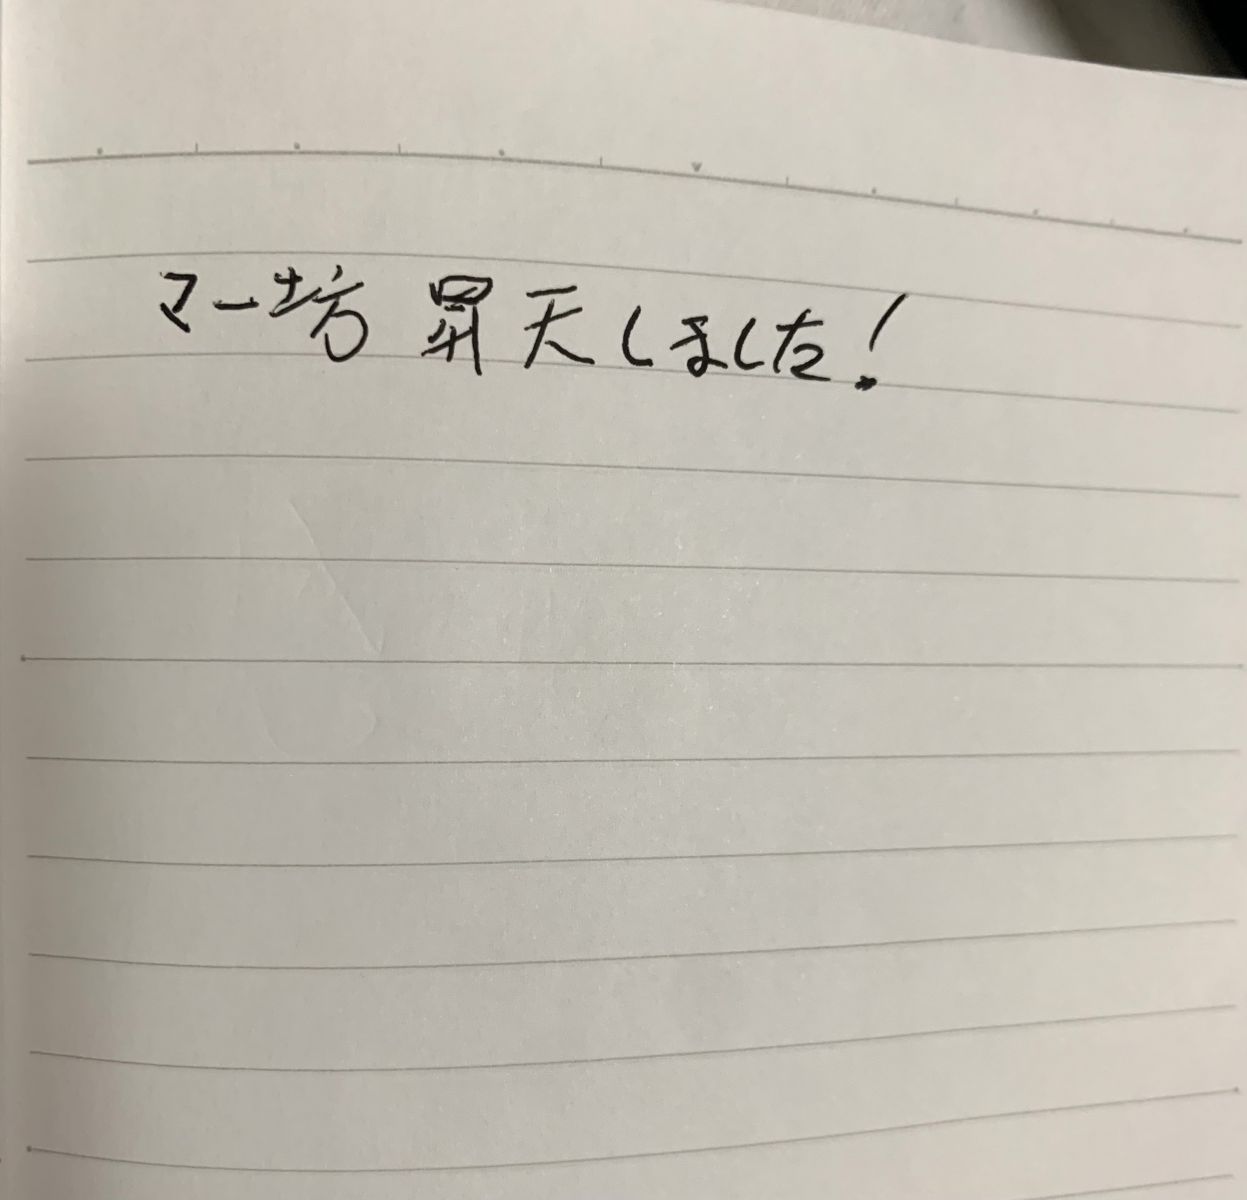 マー坊 昇天しました!